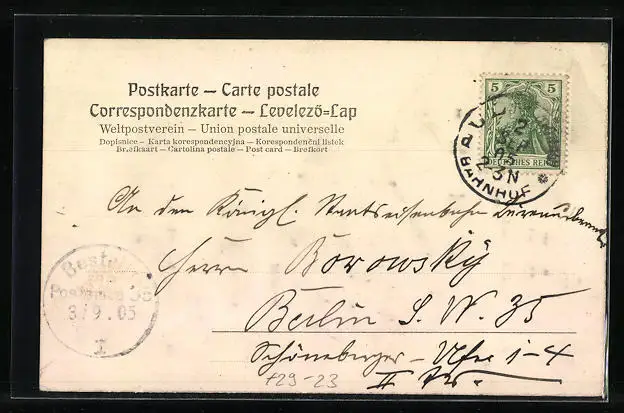 Postkarte – Carte postale
Correspondenzkarte – Levelező-Lap
Weltpostverein – Union postale universelle
Dopisnice – Karta korespondencyjna – Korespondenční lístek
Brefkaart – Cartolina postale – Post card – Brefkort
5 5
DEUTSCHES REICH
BAHNHOF
2 3 N
An den Königl. Staatseisenbahn
Herrn Borowsky
Berlin S. W. 35
Schöneberger – Ufer 1–4
II
Bestellt
Postamte 35
3/9.05
I
+29-23